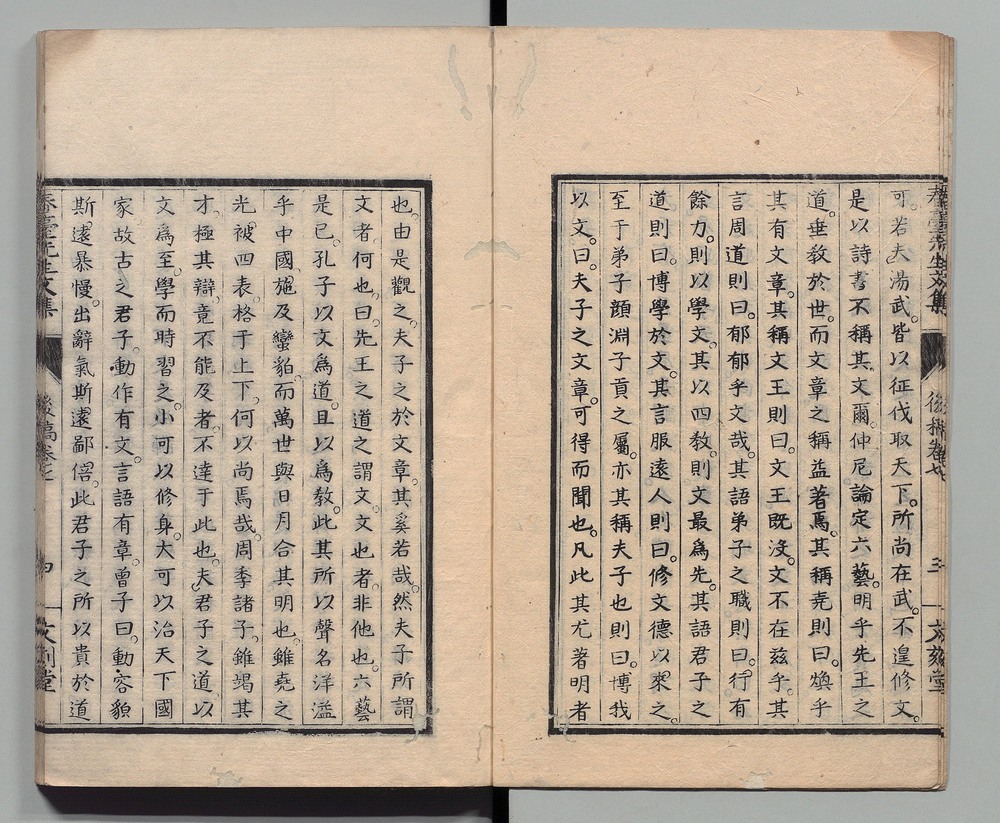 春臺先生文集
後稿卷七
三
文刻堂
可。若夫湯武。皆以征伐取天下。所尚在武。不遑修文。
是以詩書不稱其文爾。仲尼論定六藝。明乎先王之
道。垂敎於世。而文章之稱益著焉。其稱堯則曰。煥乎
其有文章。其稱文王則曰。文王既沒。文不在茲乎。其
言周道則曰。郁郁乎文哉。其語弟子之職則曰。行有
餘力。則以學文。其以四敎。則文最爲先。其語君子之
道則曰。博學於文。其言服遠人則曰。修文德以來之。
至于弟子顏淵子貢之屬。亦其稱夫子也則曰。博我
以文。曰。夫子之文章。可得而聞也。凡此其尤著明者
也。由是觀之。夫子之於文章。其奚若哉。然夫子所謂
文者。何也。曰。先王之道之謂文。文也者。非他也。六藝
是已。孔子以文爲道。且以爲敎。此其所以聲名洋溢
乎中國。施及蠻貊。而萬世與日月合其明也。雖堯之
光被四表。格于上下。何以尚焉哉。周季諸子。雖竭其
才。極其辯。竟不能及者。不達于此也。夫君子之道。以
文爲至。學而時習之。小可以修身。大可以治天下國
家。故古之君子。動作有文。言語有章。曾子曰。動容貌
斯遠暴慢。出辭氣斯遠鄙倍。此君子之所以貴於道
春臺先生文集
後稿卷七
四
文刻堂